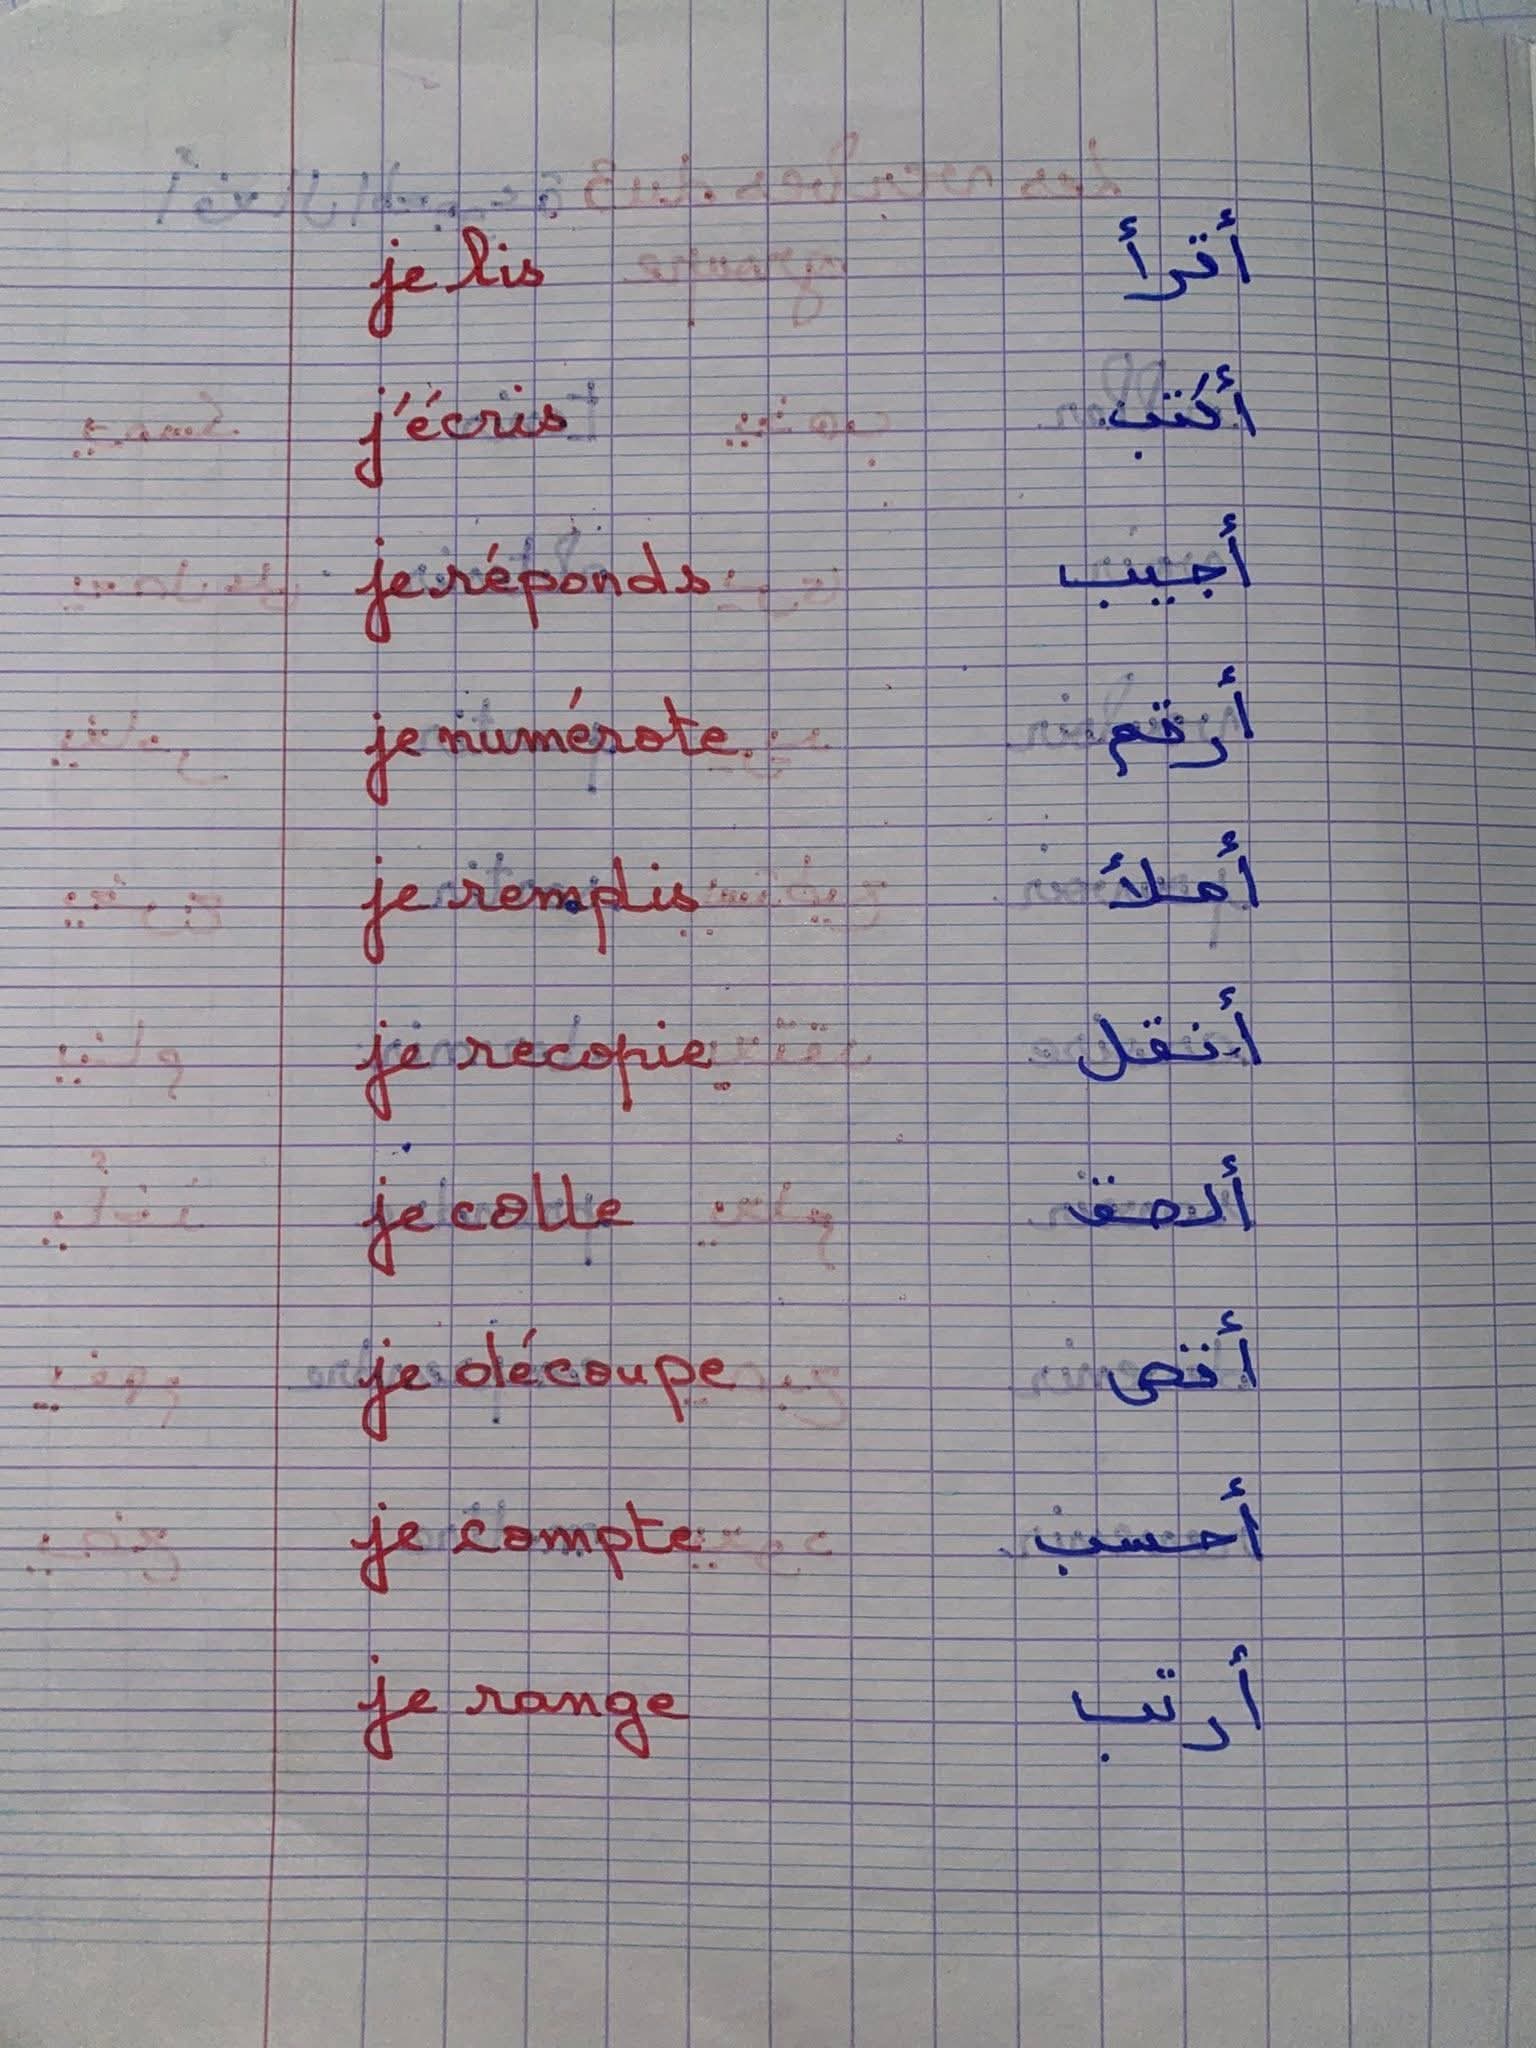 je lis أقرأ
j'écris أكتب
je réponds أجيب
je numérote أرقم
je remplis أملأ
je recopie أنقل
je colle ألصق
je découpe أقص
je compte أحسب
je range أرتب